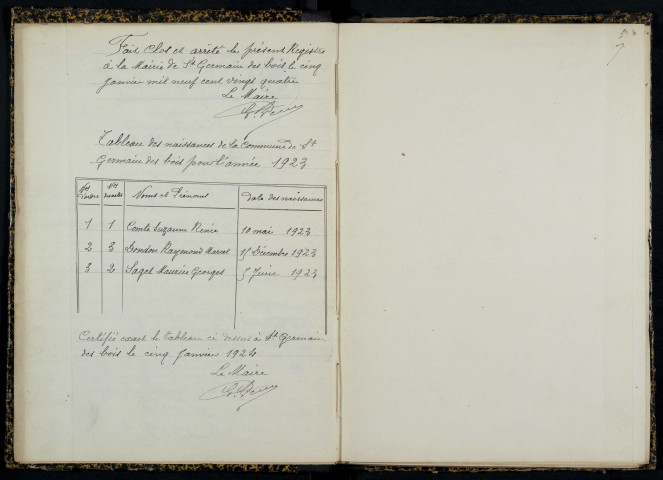 Fait Clos et arrêté le présent Registre
à la Mairie de St Germain des bois le cinq
Janvier mil neuf cent vingt quatre
Le Maire
Tableau des naissances de la Commune de St
Germain des bois pour l'année 1923
Nos d'ordre Nos des actes Noms et Prénoms Date des naissances
1 1 Comte Suzanne Renée 10 mai 1923
2 3 Dondon Raymond Marcel 15 Décembre 1923
3 2 Saget Maurice Georges 5 Juin 1923
Certifié exact le tableau ci dessus à St Germain
des bois le cinq Janvier 1924
Le Maire